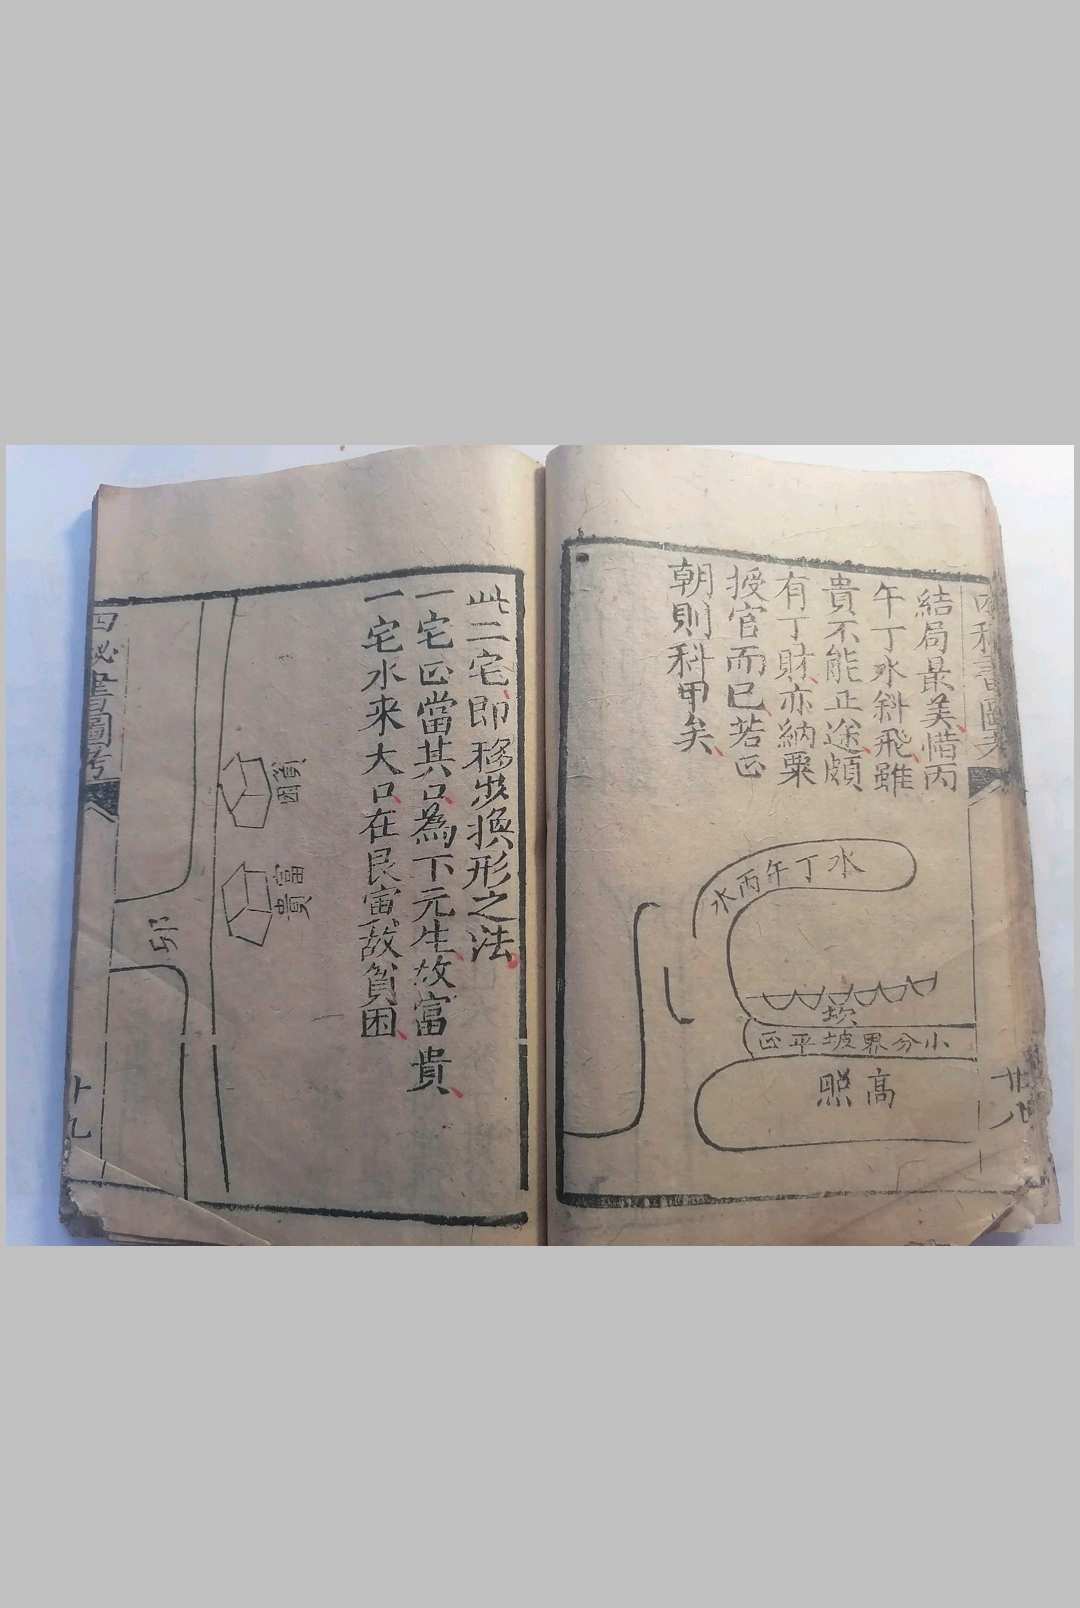 結局最美惜丙
午丁水斜飛雖
貴不能正途頗
有丁財亦納粟
授官而已若正
朝則科甲矣
水丁午丙水
坎
小分界坡平正
高照
廿八
此二宅即移步換形之法
一宅正當其口為下元生故富貴
一宅水来大口在艮寅故貧困
貧困
富貴
卯
四秘書圖考
廿九